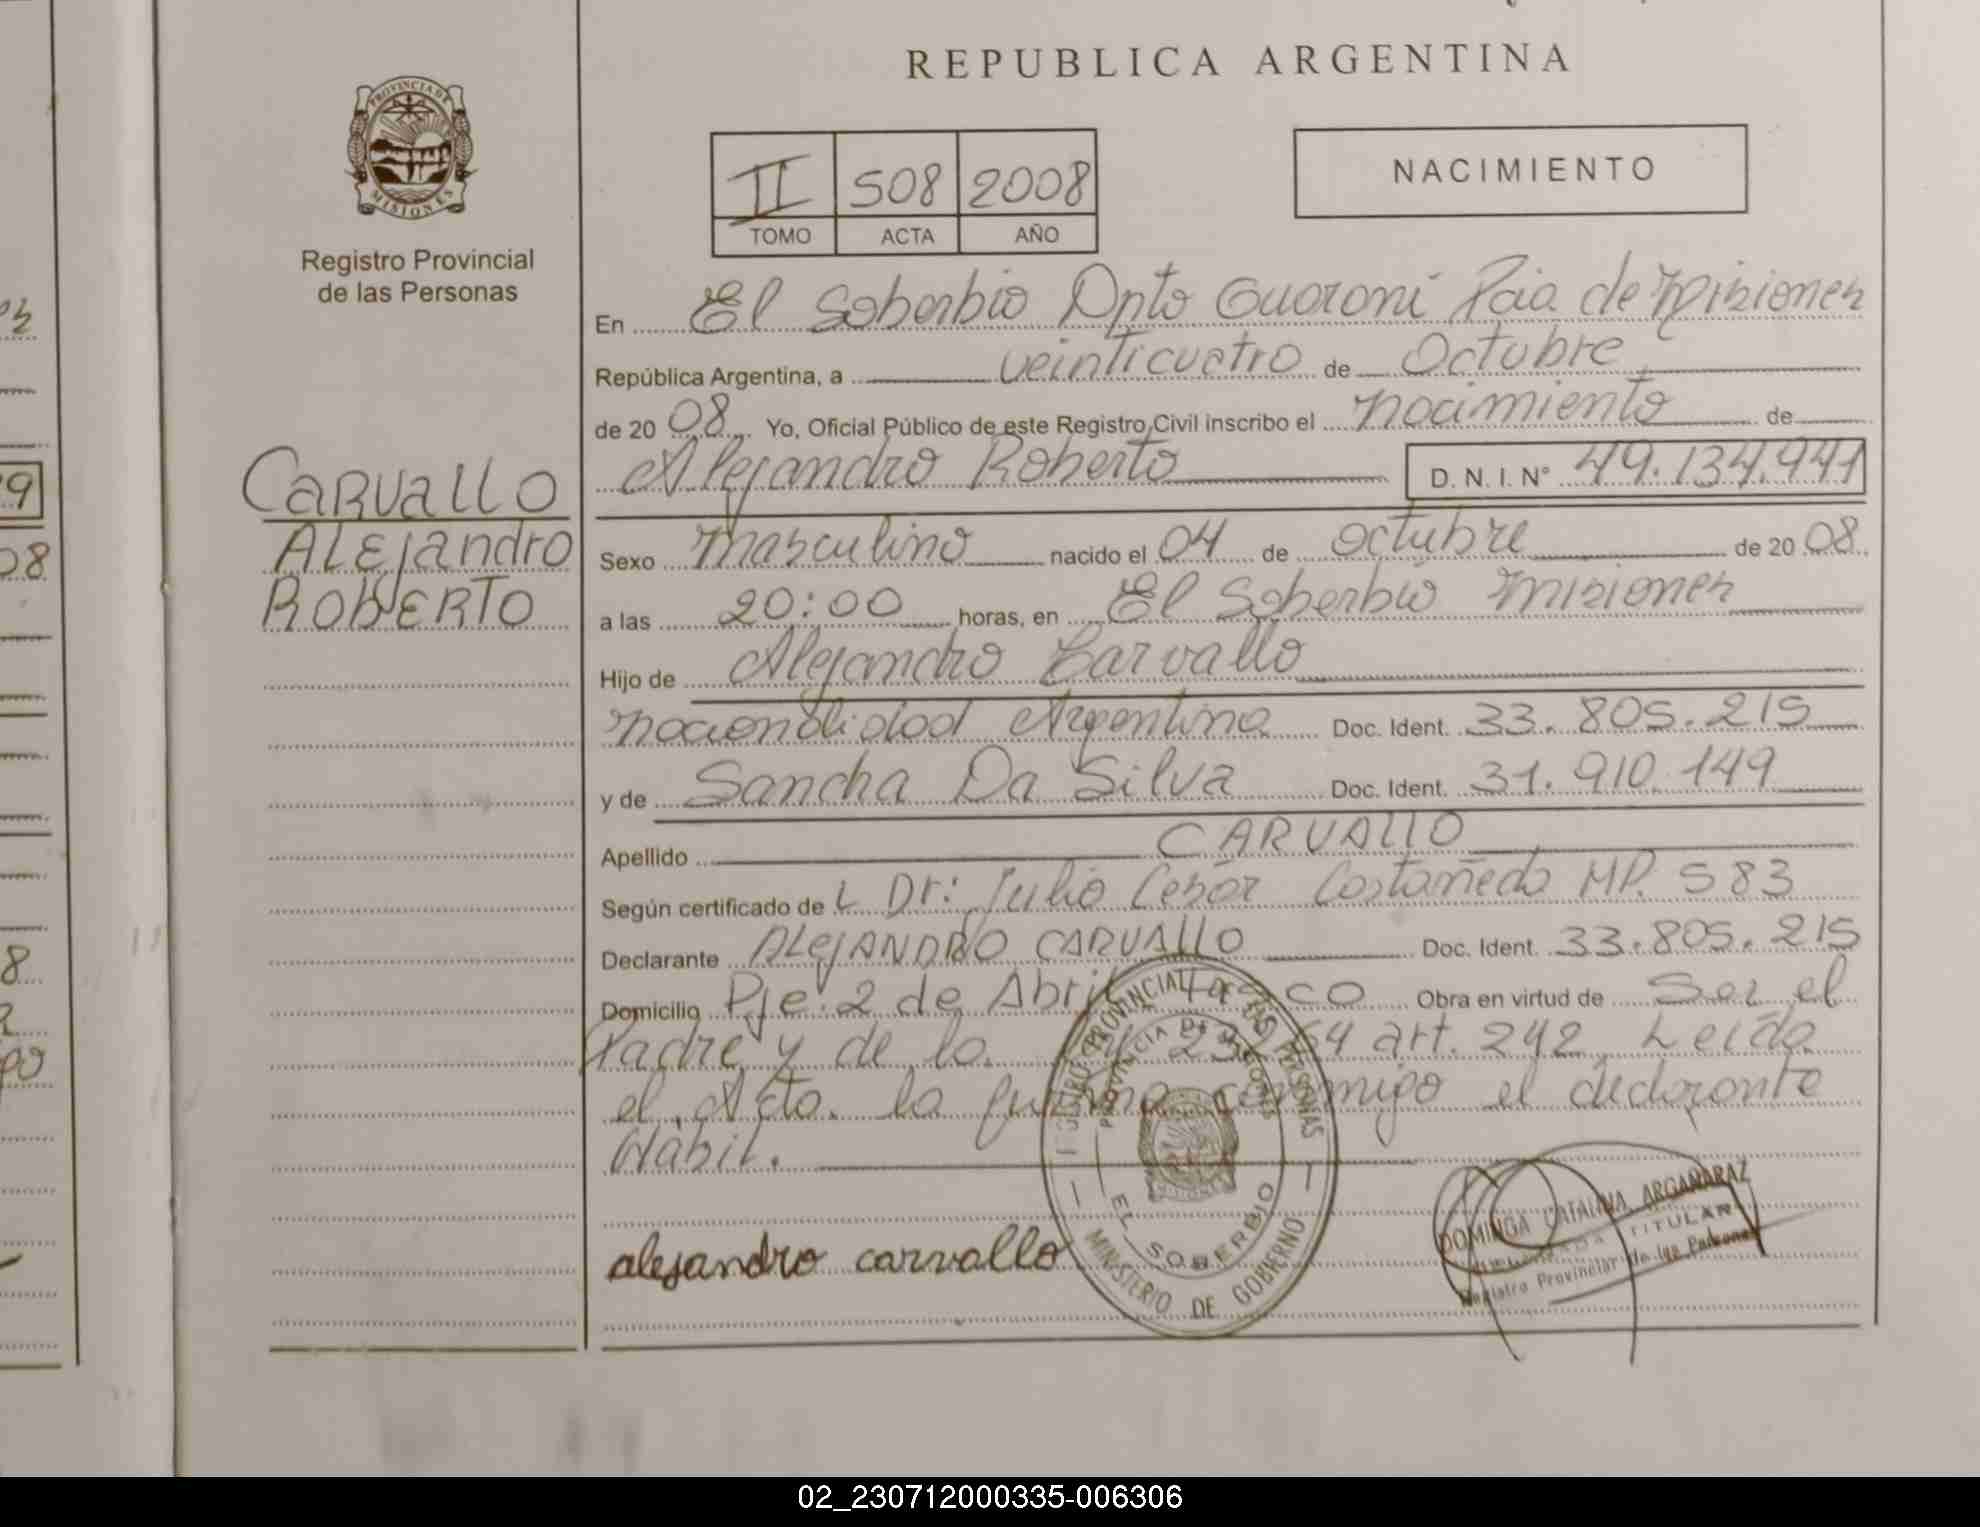 REPUBLICA ARGENTINA
PROVINCIA DE
MISIONES
Registro Provincial
de las Personas
II 508 2008
TOMO ACTA AÑO
NACIMIENTO
En El Soberbio Dpto Guaraní Pcia. de Misiones
República Argentina, a veinticuatro de Octubre
de 20 08 Yo, Oficial Público de este Registro Civil inscribo el nacimiento de
Alejandro Roberto D. N. I. Nº 49.134.941
CARVALLO
ALEJandro
ROBERTO
Sexo masculino nacido el 04 de octubre de 20 08
a las 20:00 horas, en El Soberbio Misiones
Hijo de Alejandro Carvallo
nacionalidad Argentina Doc. Ident. 33.805.215
y de Sancha Da Silva Doc. Ident. 31.910.149
Apellido CARVALLO
Según certificado de L Dr: Julio Cesar Castañeda MP. 583
Declarante ALEJANDRO CARVALLO Doc. Ident. 33.805.215
Domicilio Pje. 2 de Abril Obra en virtud de Ser el
Padre y de la art. 242 Leida
el Acta. la firma conmigo el declarante
Hábil.
alejandro carvallo
REGISTRO PROVINCIAL DE LAS PERSONAS
PROVINCIA DE MISIONES
EL SOBERBIO
MINISTERIO DE GOBIERNO
DOMINGA CATALINA ARGAÑARAZ
TITULAR
Registro Provincial de las Personas
9
08
8
02_230712000335-006306